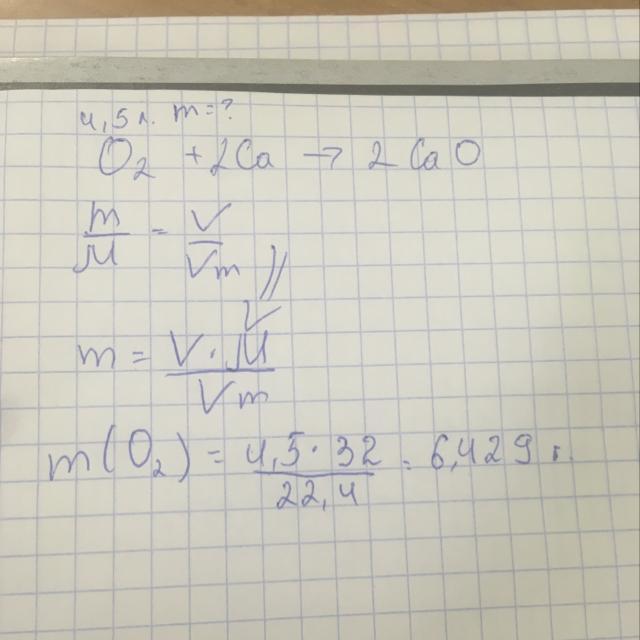 4,5 л. m = ?
O₂ + 2Ca → 2CaO
m/M = V/Vm //
m = V · M / Vm
m(O₂) = 4,5 · 32 / 22,4 = 6,429 г.